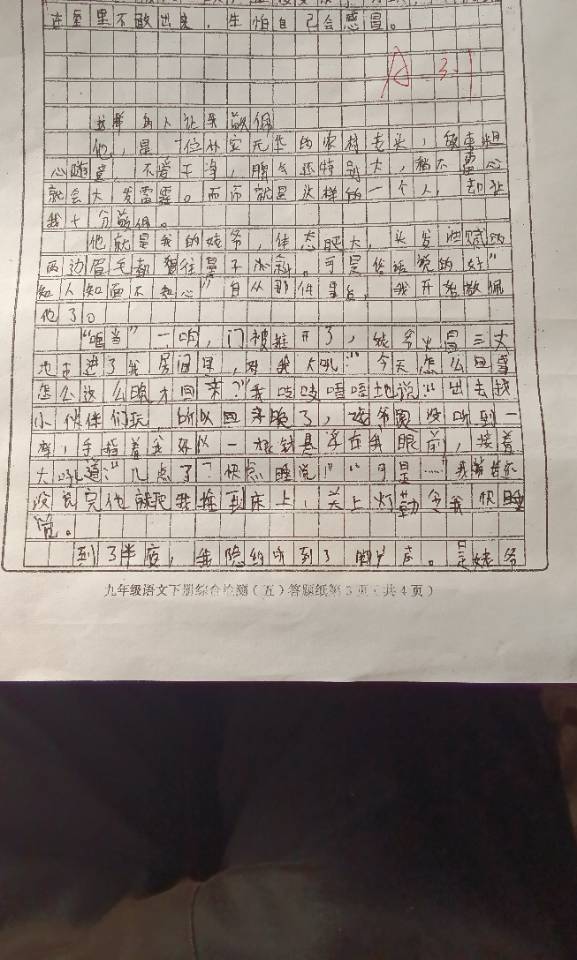 在里不敢出来，生怕自己会感冒。
A 31
这样的人让我敬佩
他，是一位朴实无华的农村老头，做事粗
心随意，不爱干净，脾气还特别大，稍不留心
就会大发雷霆。而而就是这样的一个人，却让
我十分敬佩。
他就是我的姥爷，体态肥大，头发
两边眉毛都。可是俗话说的好"
知人知面不知心"自从那件事后，我开始敬佩
他了。
"咣当"一响，门被推开了，姥爷火冒三丈
地走进了我房间里，对我大吼："今天怎么回事
怎么这么晚才回来？"我吱吱唔唔地说："出去找
小伙伴们玩，所以回来晚了，"姥爷跟没听到一
样，手指着我好似一根钱悬浮在我眼前，接着
大吼道："几点了！快点睡觉！""可是……"我等
没说完他就把我推到床上，关上灯勒令我快睡
觉。
到了半夜，我隐约听到了脚步声。是姥爷
九年级语文下册综合检测（五）答题纸第3页（共4页）